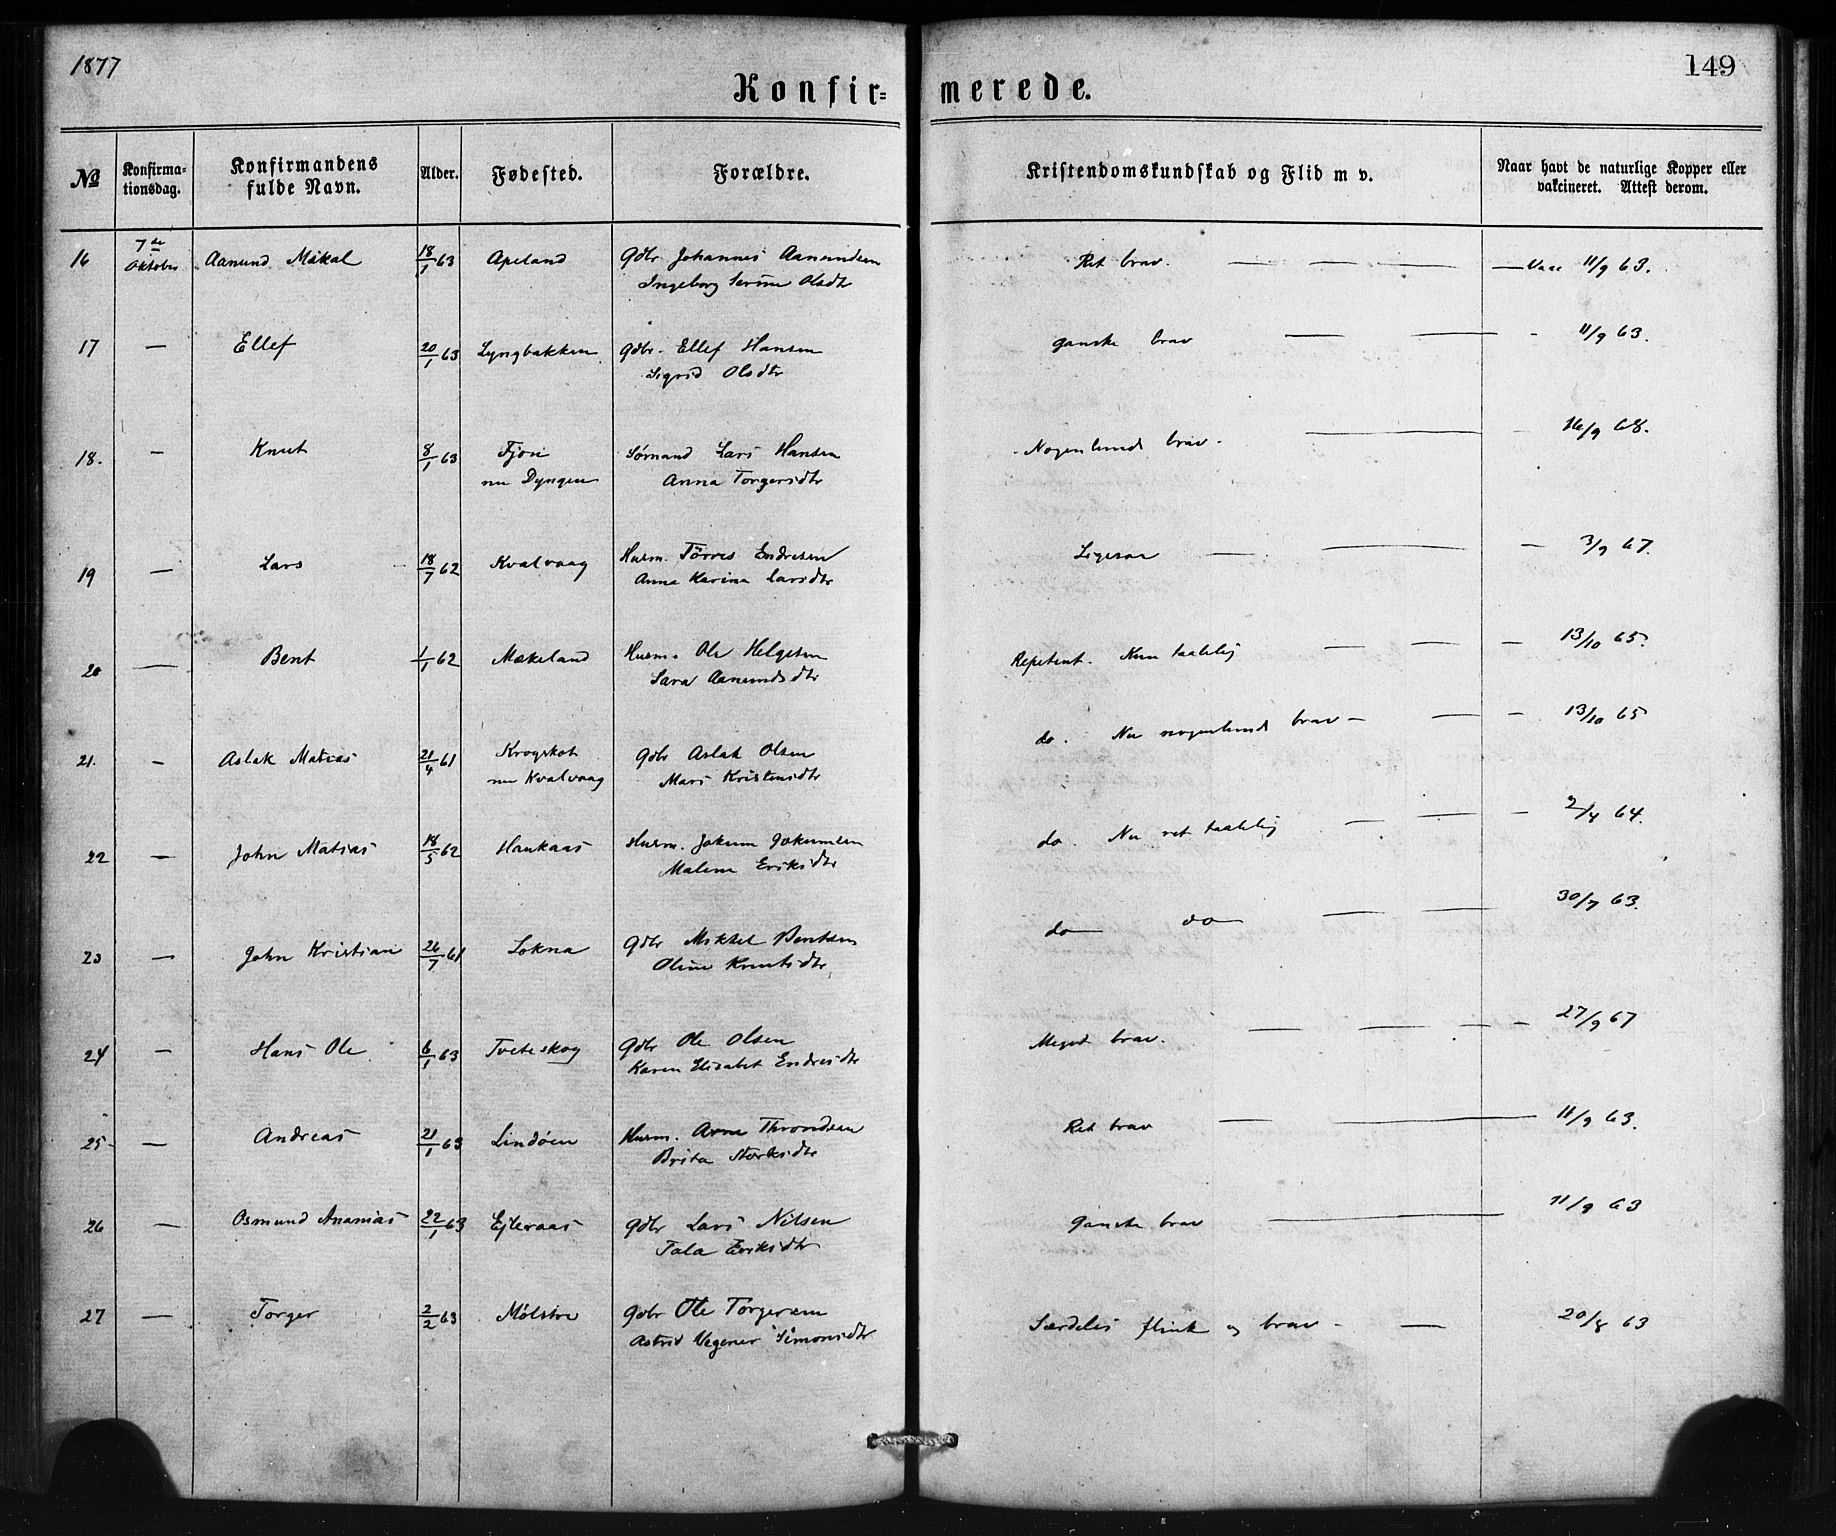 1877
149
Konfir= merede.
№ Konfirma-tionsdag. Konfirmandens fulde Navn. Alder. Fødested. Forældre. Kristendomskundskab og Flid m v. Naar havt de naturlige Kopper eller vakcineret. Attest derom.
16 7de Oktober Aanund Mikal 18/1 63 Apeland Gdbr Johannes Aanundsen Ret brav. — — — — Vacc 11/9 63.
Ingeborg Serine Olsdtr
17 — Ellef 20/1 63 Lyngbakken Gdbr. Ellef Hansen ganske brav — — - 11/9 63.
Sigrid Olsdtr
18. — Knut 8/1 63 Lars Hansen Nogenlunde brav. — - 16/9 68.
nu Dyngen Anna Torgersdtr
19 — Lars 18/7 62 Kvalvaag Husm. Tørres Endresen Ligesaa — — — 3/9 67.
Anna Karina Larsdtr
20 — Bent 1/1 62 Mækeland Husm. Ole Helgesen Repetent. Nu taalelig — — — 13/10 65.
Sara Aanundsdtr
21. — Aslak Matias 21/4 61 Krogskot Gdbr Aslak Olsen do. Nu nogenlunde brav — — — 13/10 65
nu Kvalvaag Mari Kristensdtr
22 — John Matias 18/5 62 Haukaas Husm. Jokum Jokumsen do. Nu ret taalelig — — — 64.
Malene Eriksdtr
23 — John Kristian 26/7 61 Lokna Gdbr Mikkel Bentsen do — do — — — 30/7 63.
Oline Knutsdtr
24 — Hans Ole 6/1 63 Tveteskog Gdbr Ole Olsen Meget brav. — — — — 27/9 67
Karen Elisabet Endresdtr
25 — Andreas 21/1 63 Lindøen Husm. Arne Throndsen Ret brav — — 11/9 63.
Brita Størksdtr
26 — Osmund Ananias 22/1 63 Ejleraas Gdbr Lars Nilsen Ganske brav — 11/9 63
Tala Eriksdtr
27 — Torger 2/2 63 Mølstre Gdbr Ole Torgersen Særdeles flink og brav - — 20/8 63
Astrid Vegener Simonsdtr